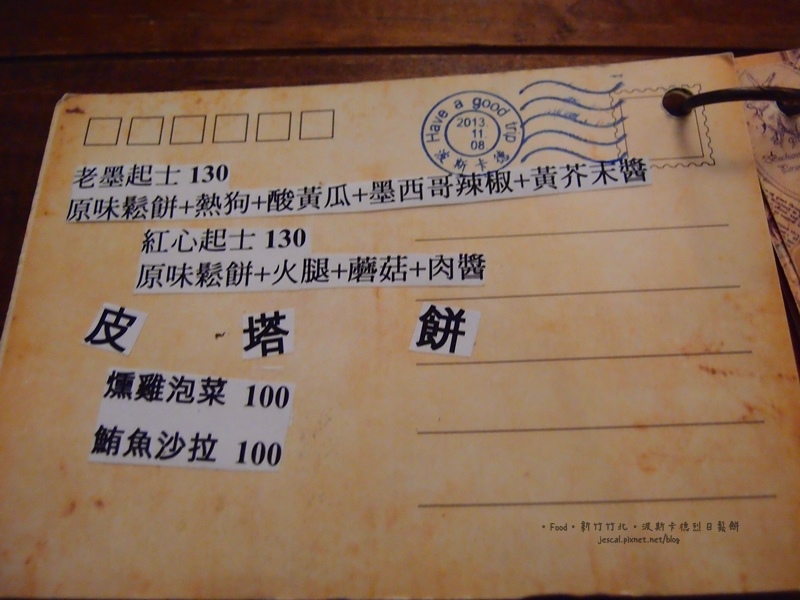 Have a good trip
2013.
11.
08
波斯卡德
老墨起士 130
原味鬆餅+熱狗+酸黃瓜+墨西哥辣椒+黃芥末醬
紅心起士 130
原味鬆餅+火腿+蘑菇+肉醬
皮 塔 餅
燻雞泡菜 100
鮪魚沙拉 100
•Food•新竹竹北•波斯卡德烈日鬆餅
jescal.pixnet.net/blog